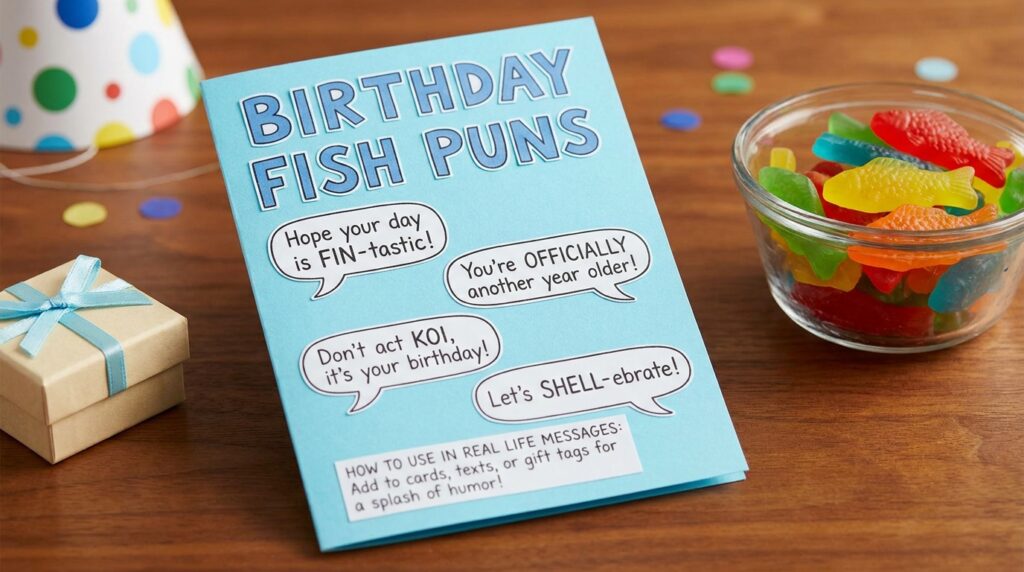 BIRTHDAY
FISH PUNS
Hope your day
is FIN-tastic!
You're OFFICIALLY
another year older!
Don't act KOI,
it's your birthday!
Let's SHELL-ebrate!
HOW TO USE IN REAL LIFE MESSAGES:
Add to cards, texts, or gift tags for
a splash of humor!